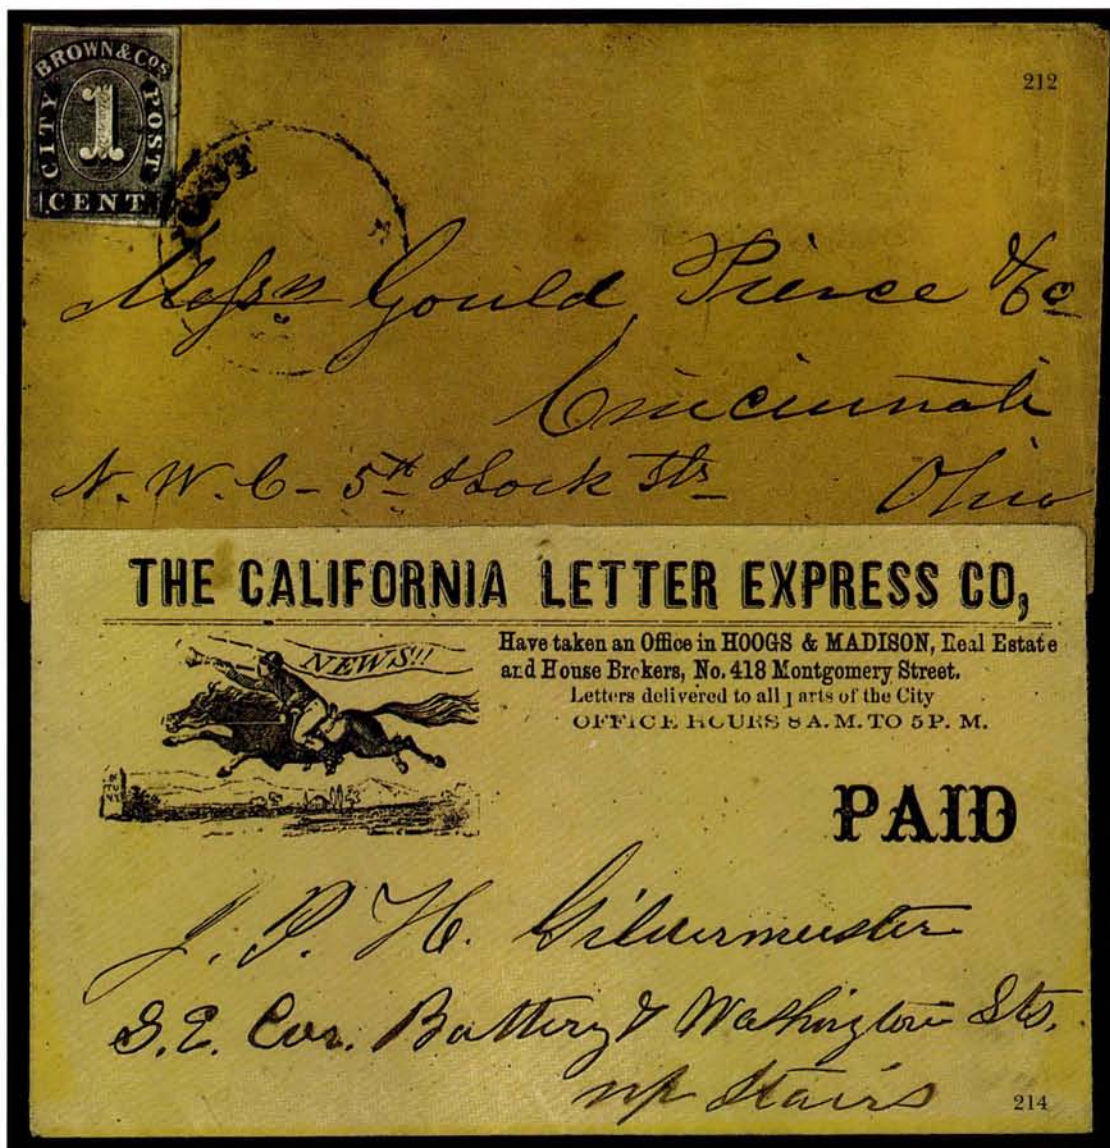 BROWN & COS
CITY POST
1
CENT
212
Messrs Gould, Pierce & Co
Cincinnati
N. W. C - 5th & Lock Sts
Ohio
THE CALIFORNIA LETTER EXPRESS CO,
NEWS!!
Have taken an Office in HOOGS & MADISON, Real Estate
and House Brokers, No. 418 Montgomery Street.
Letters delivered to all parts of the City
OFFICE HOURS 8 A. M. TO 5 P. M.
PAID
J. P. H. Gildermeester
S. E. Cor. Battery & Washington Sts.
up Stairs
214